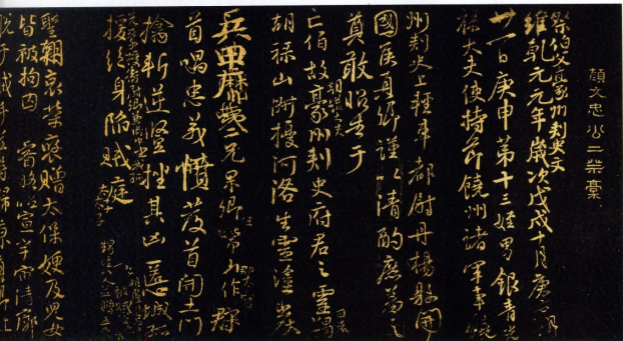 顏文忠公二祭藁
祭伯父豪州刺史文
維乾元元年歲次戊戌十月庚朔
廿一日庚申第十三姪男銀青光
祿大夫使持節饒州諸軍事饒
州刺史上輕車都尉丹楊縣開
國侯真卿謹以清酌庶羞之
奠敢昭告于
亡伯故豪州刺史府君之靈曰
胡祿山俶擾河洛生靈塗炭
兵甲靡二兄杲卿常山作郡
首唱忠義憤發首開土門
擒斬逆豎挫其凶慝城孤
援絕身陷賊庭
聖朝哀榮褒贈太保嫂及兒女
皆被拘囚睿略昭宣宇宙清廓
脫于賊手並得歸京